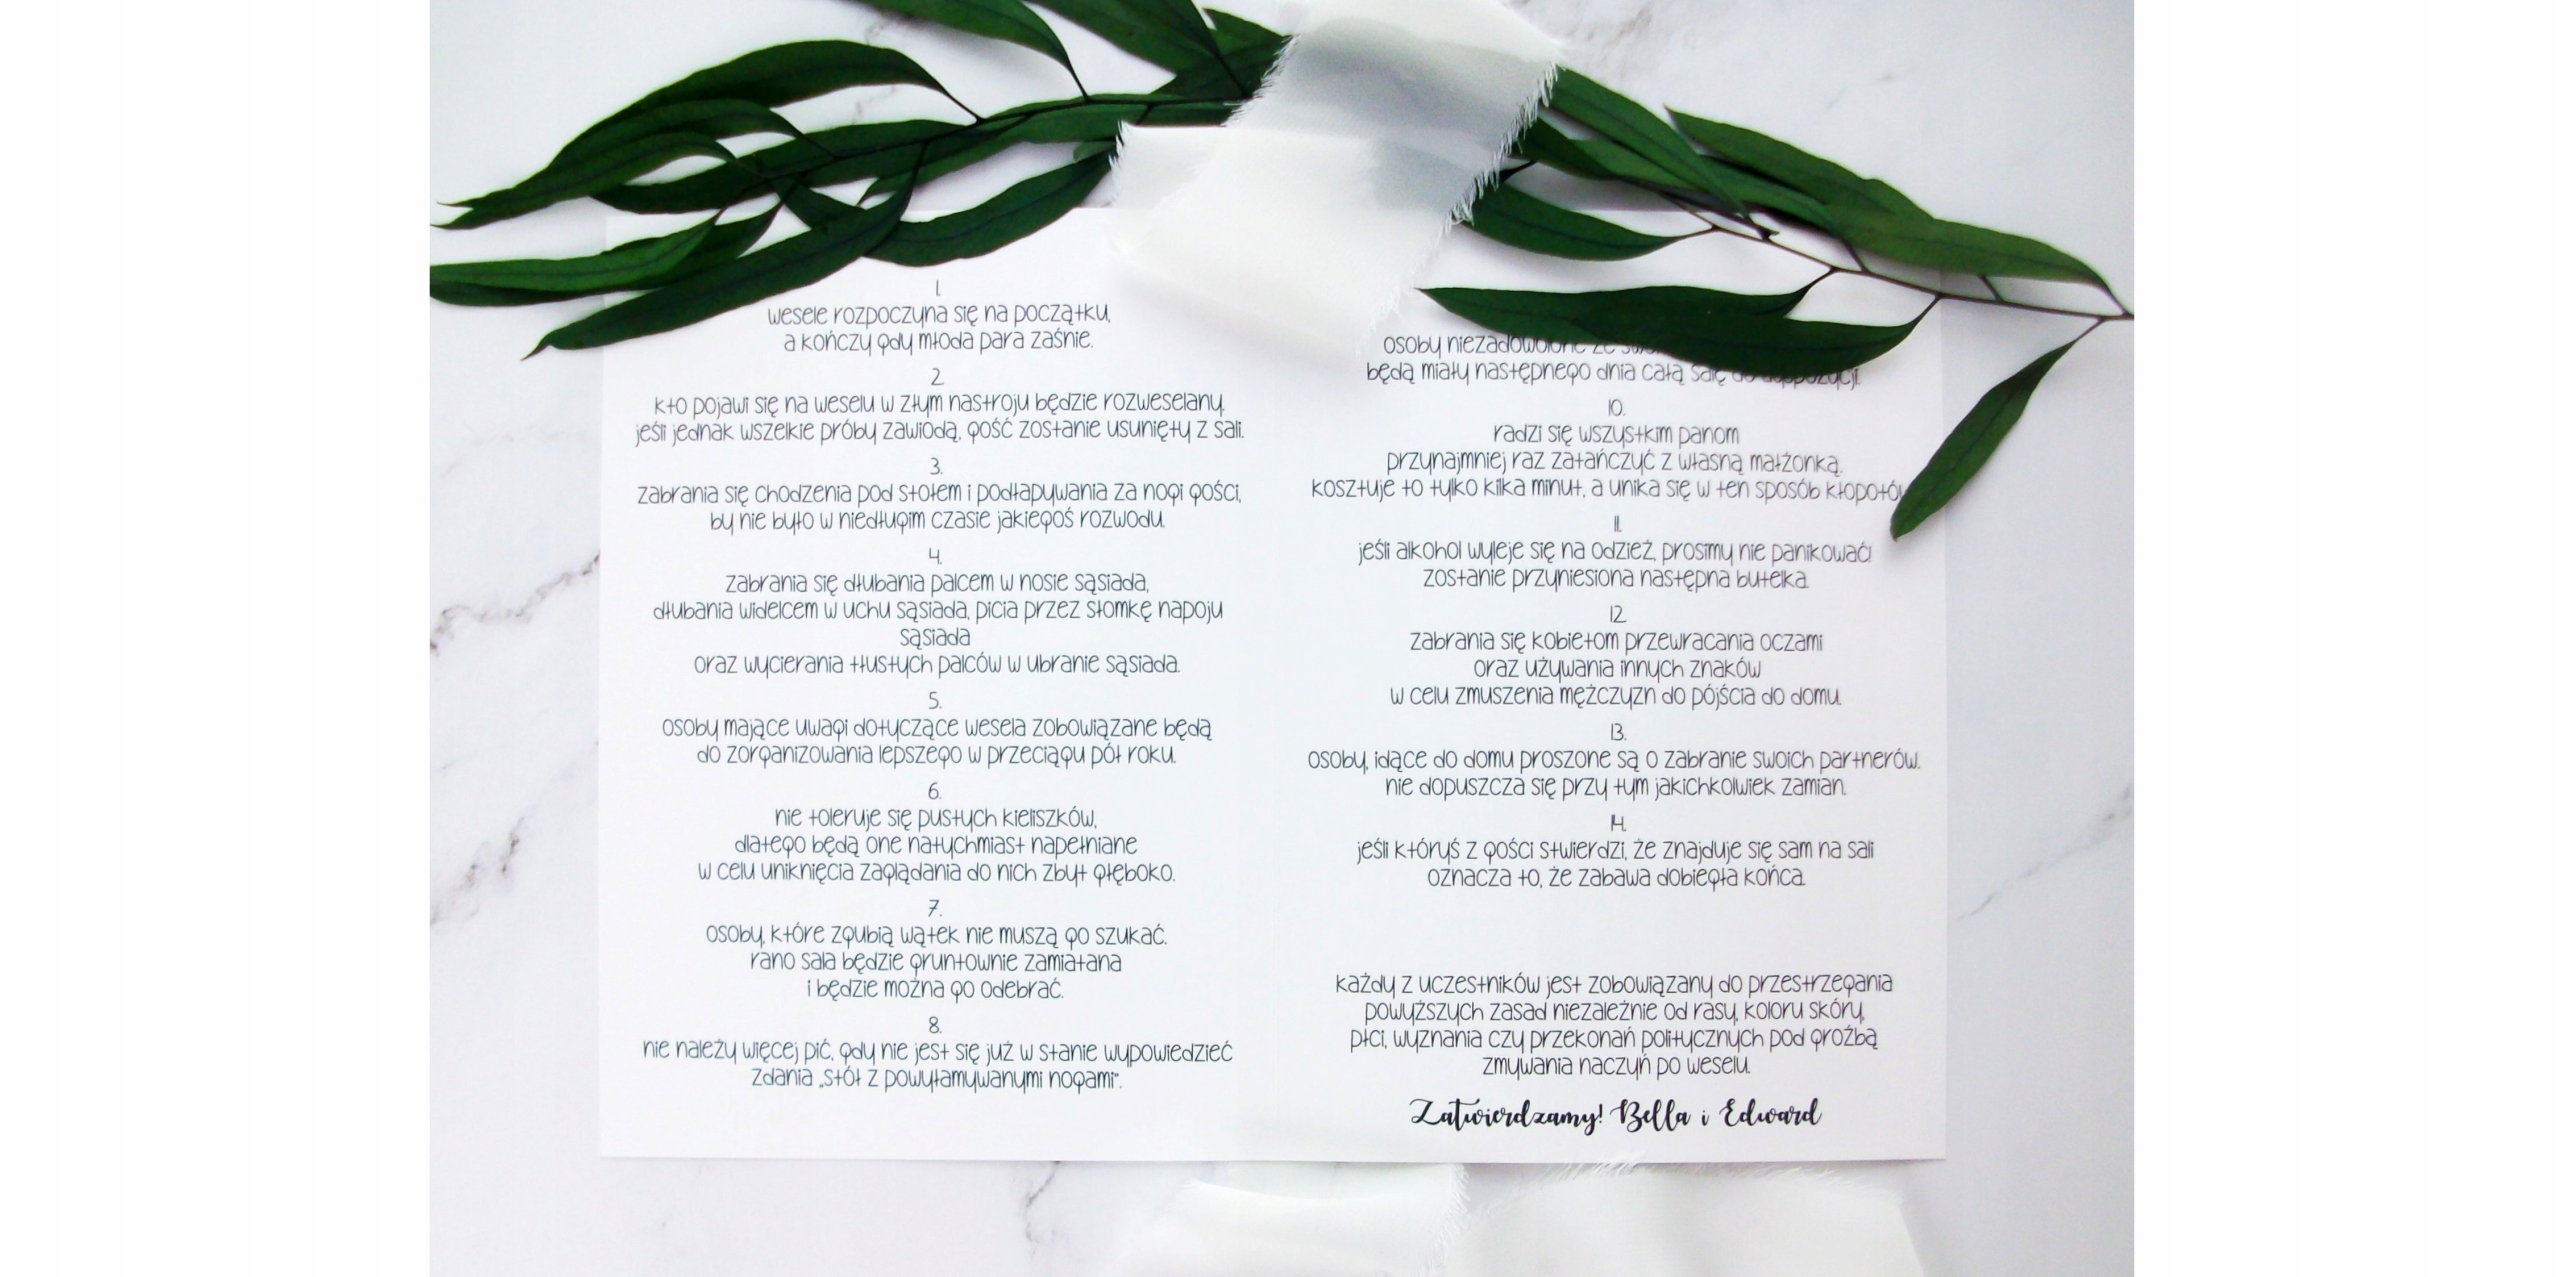 1.
wesele rozpoczyna się na początku,
a kończy gdy młoda para zaśnie.
2.
kto pojawi się na weselu w złym nastroju będzie rozweselany.
jeśli jednak wszelkie próby zawiodą, gość zostanie usunięty z sali.
3.
zabrania się chodzenia pod stołem i podłapywania za nogi gości,
by nie było w niedługim czasie jakiegoś rozwodu.
4.
zabrania się dłubania palcem w nosie sąsiada,
dłubania widelcem w uchu sąsiada, picia przez słomkę napoju
sąsiada
oraz wycierania tłustych palców w ubranie sąsiada.
5.
osoby mające uwagi dotyczące wesela zobowiązane będą
do zorganizowania lepszego w przeciągu pół roku.
6.
nie toleruje się pustych kieliszków,
dlatego będą one natychmiast napełniane
w celu uniknięcia zaglądania do nich zbyt głęboko.
7.
osoby, które zgubią wątek nie muszą go szukać.
rano sala będzie gruntownie zamiatana
i będzie można go odebrać.
8.
nie należy więcej pić, gdy nie jest się już w stanie wypowiedzieć
zdania „stół z powyłamywanymi nogami”.
osoby niezadowolone ze
będą miały następnego dnia całą salę do dyspozycji.
10.
radzi się wszystkim panom
przynajmniej raz zatańczyć z własną małżonką.
kosztuje to tylko kilka minut, a unika się w ten sposób kłopotów
11.
jeśli alkohol wyleje się na odzież, prosimy nie panikować!
zostanie przyniesiona następna butelka.
12.
zabrania się kobietom przewracania oczami
oraz używania innych znaków
w celu zmuszenia mężczyzn do pójścia do domu.
13.
osoby, idące do domu proszone są o zabranie swoich partnerów.
nie dopuszcza się przy tym jakichkolwiek zamian.
14.
jeśli któryś z gości stwierdzi, że znajduje się sam na sali
oznacza to, że zabawa dobiegła końca.
każdy z uczestników jest zobowiązany do przestrzegania
powyższych zasad niezależnie od rasy, koloru skóry,
płci, wyznania czy przekonań politycznych pod groźbą
zmywania naczyń po weselu.
Zatwierdzamy! Bella i Edward